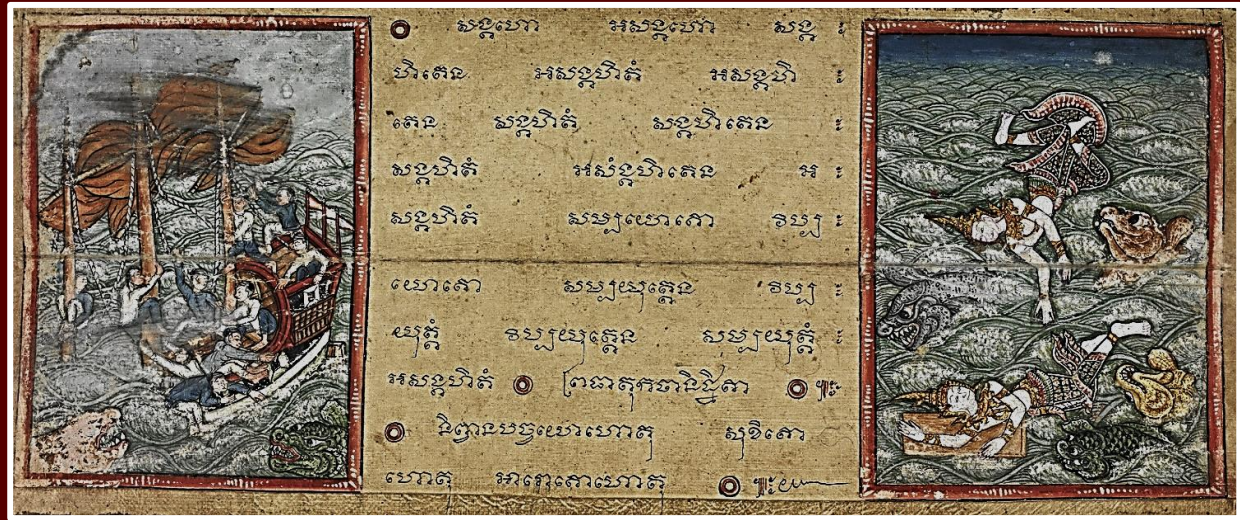 សង្គហោ អសង្គហោ សង្គ ៖
ហិតេន អសង្គហិតំ អសង្គហិ ៖
តេន សង្គហិតំ សង្គហិតេន ៖
សង្គហិតំ អសំង្គហិតេន អ ៖
សង្គហិតំ សម្បយោគោ វិប្ប ៖
យោគោ សម្បយុត្តេន វិប្ប ៖
យុត្តំ វិប្បយុត្តេន សម្បយុត្តំ ៖
អសង្គហិតំ ព្រធាតុកថានិដ្ឋិតា
និព្វានបច្ចយោហោតុ សុខីតោ
ហោតុ